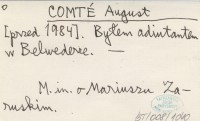 COMTÉ August
[przed 1984]. Byłem adiutantem
w Belwederze. —
M.in. o Mariuszu Za-
ruskim.